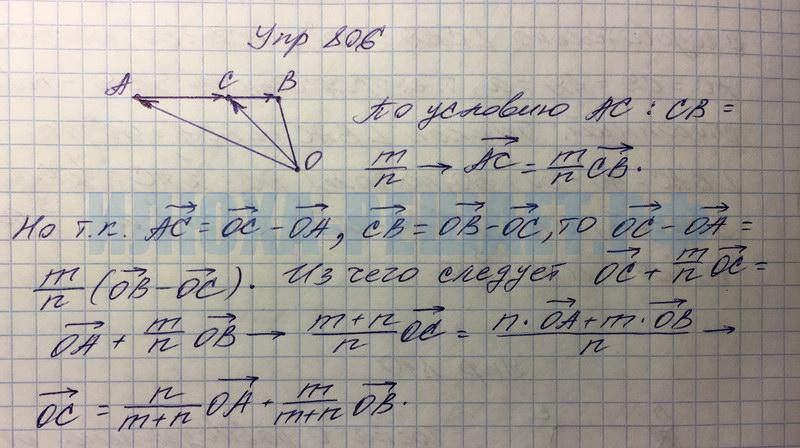 Упр 806
A C B
O
По условию AC : CB =
m/n → \overrightarrow{AC} = m/n \overrightarrow{CB}.
Но т.к. \overrightarrow{AC} = \overrightarrow{OC} - \overrightarrow{OA}, \overrightarrow{CB} = \overrightarrow{OB} - \overrightarrow{OC}, то \overrightarrow{OC} - \overrightarrow{OA} =
m/n (\overrightarrow{OB} - \overrightarrow{OC}). Из чего следует \overrightarrow{OC} + m/n \overrightarrow{OC} =
\overrightarrow{OA} + m/n \overrightarrow{OB} → (m+n)/n \overrightarrow{OC} = (n · \overrightarrow{OA} + m · \overrightarrow{OB})/n →
\overrightarrow{OC} = n/(m+n) \overrightarrow{OA} + m/(m+n) \overrightarrow{OB}.